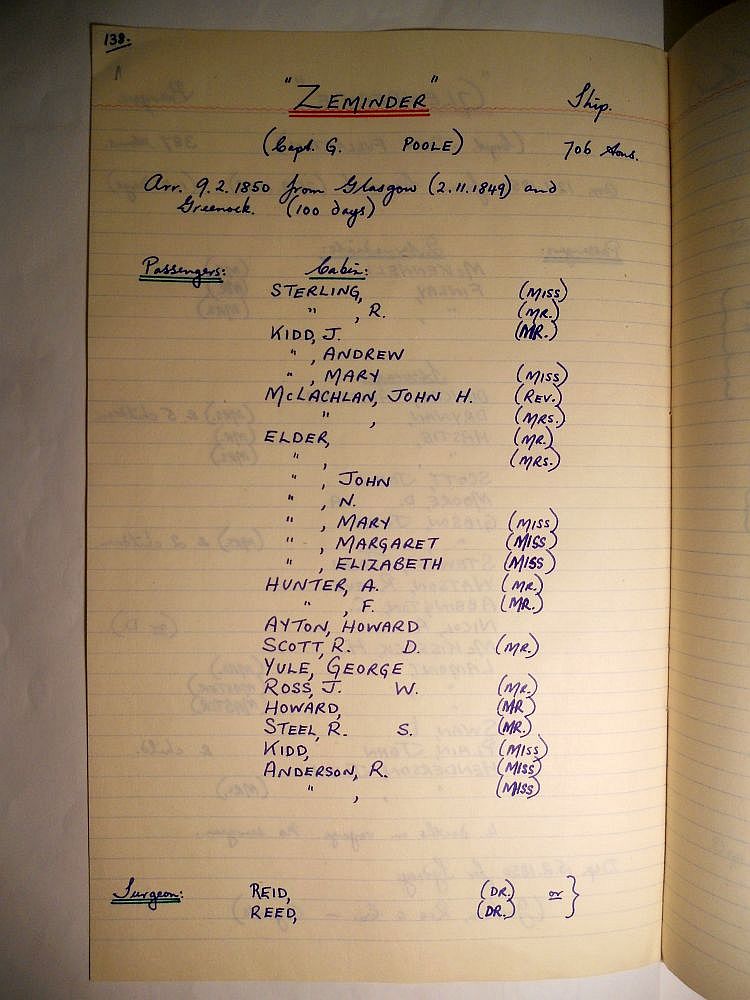 138.
"ZEMINDER" Ship.
(Capt. G. POOLE) 706 tons.
Arr. 9.2.1850 from Glasgow (2.11.1849) and
Greenock. (100 days)
Passengers: Cabin:
STERLING, (MISS)
" , R. (MR.)
KIDD, J. (MR.)
" , ANDREW
" , MARY (MISS)
McLACHLAN, JOHN H. (REV.)
" , (MRS.)
ELDER, (MR.)
" , (MRS.)
" , JOHN
" , N.
" , MARY (MISS)
" , MARGARET (MISS)
" , ELIZABETH (MISS)
HUNTER, A. (MR.)
" , F. (MR.)
AYTON, HOWARD
SCOTT, R. D. (MR.)
YULE, GEORGE
ROSS, J. W. (MR.)
HOWARD, (MR)
STEEL, R. S. (MR.)
KIDD, (MISS)
ANDERSON, R. (MISS)
" , (MISS)
Surgeon: REID, (DR.) or }
REED, (DR.)